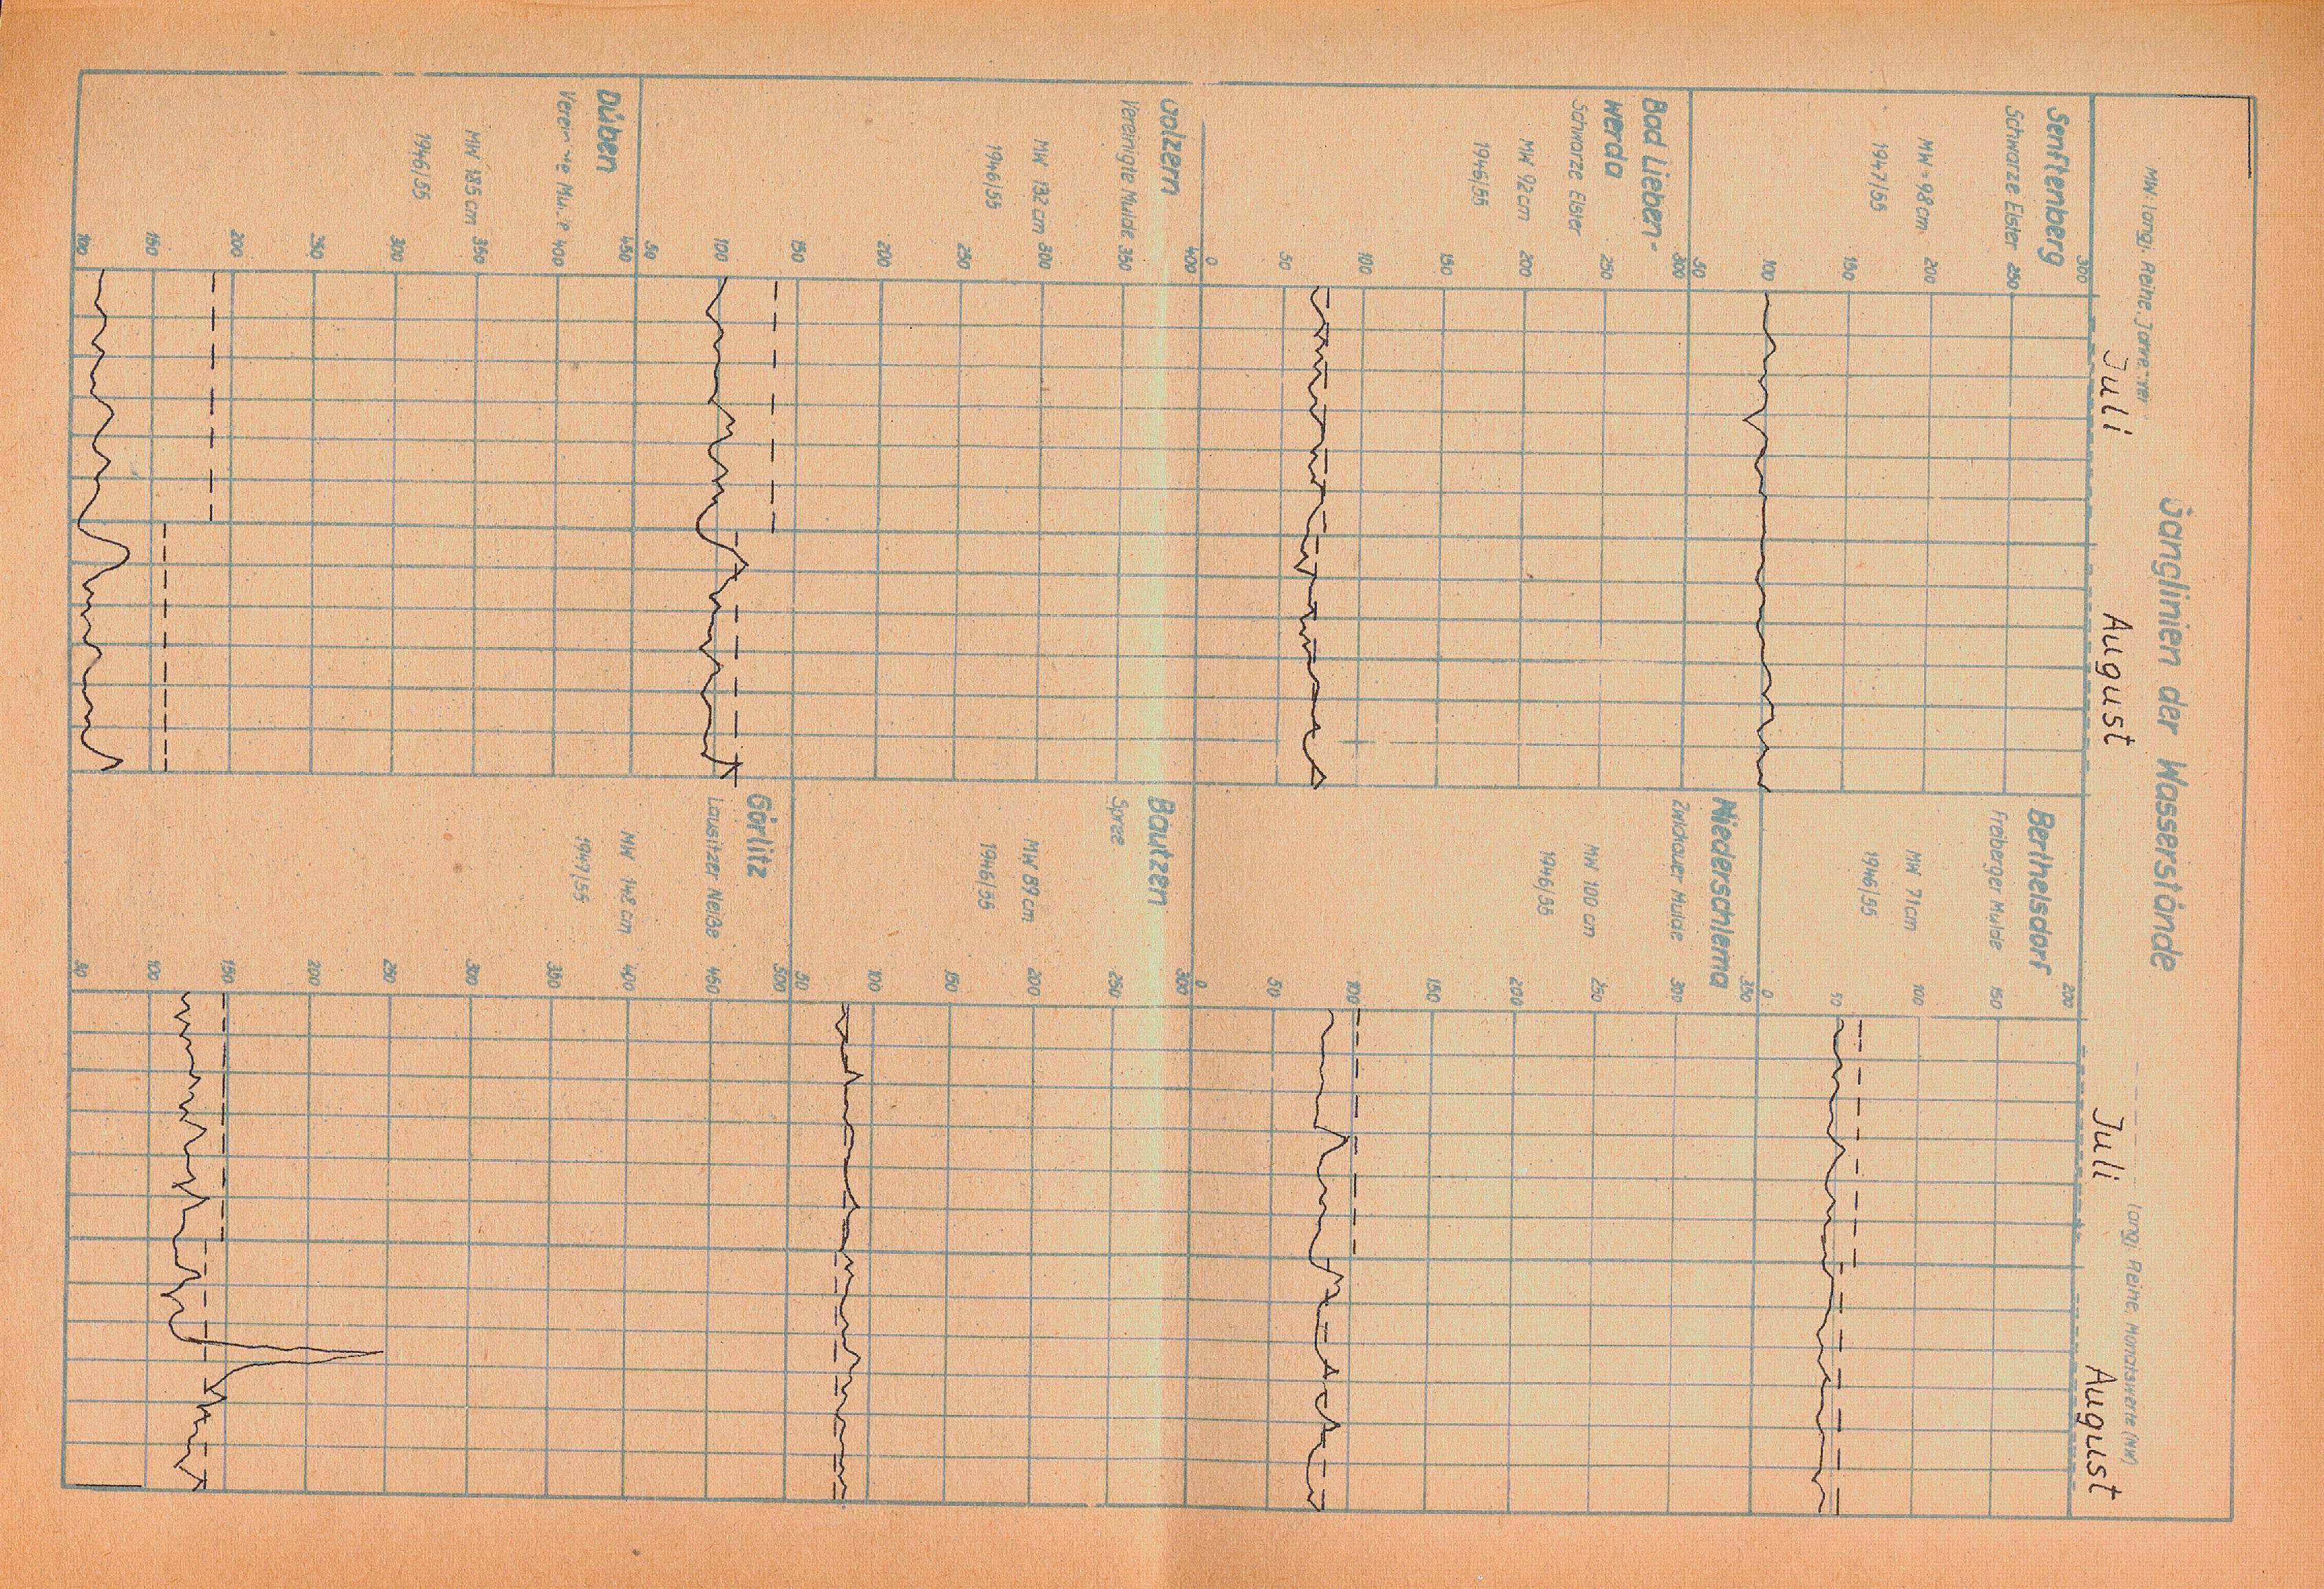 Ganglinien der Wasserstände
Juli
August
Juli
August
Senftenberg
Schwarze Elster
MW = 98 cm
1947/55
300
250
200
150
100
50
Bad Lieben-
werda
Schwarze Elster
MW 92 cm
1946/55
300
250
200
150
100
50
0
Golzern
Vereinigte Mulde
MW 132 cm
1946/55
400
350
300
250
200
150
100
50
Düben
MW 185 cm
1946/55
450
400
350
300
250
200
150
100
Berthelsdorf
Freiberger Mulde
MW 71 cm
1946/55
200
150
100
50
0
Niederschlema
Zwickauer Mulde
MW 100 cm
1946/55
350
300
250
200
150
100
50
0
Bautzen
Spree
MW 89 cm
1946/55
300
250
200
150
100
50
Görlitz
Lausitzer Neiße
MW 148 cm
1947/55
500
450
400
350
300
250
200
150
100
50